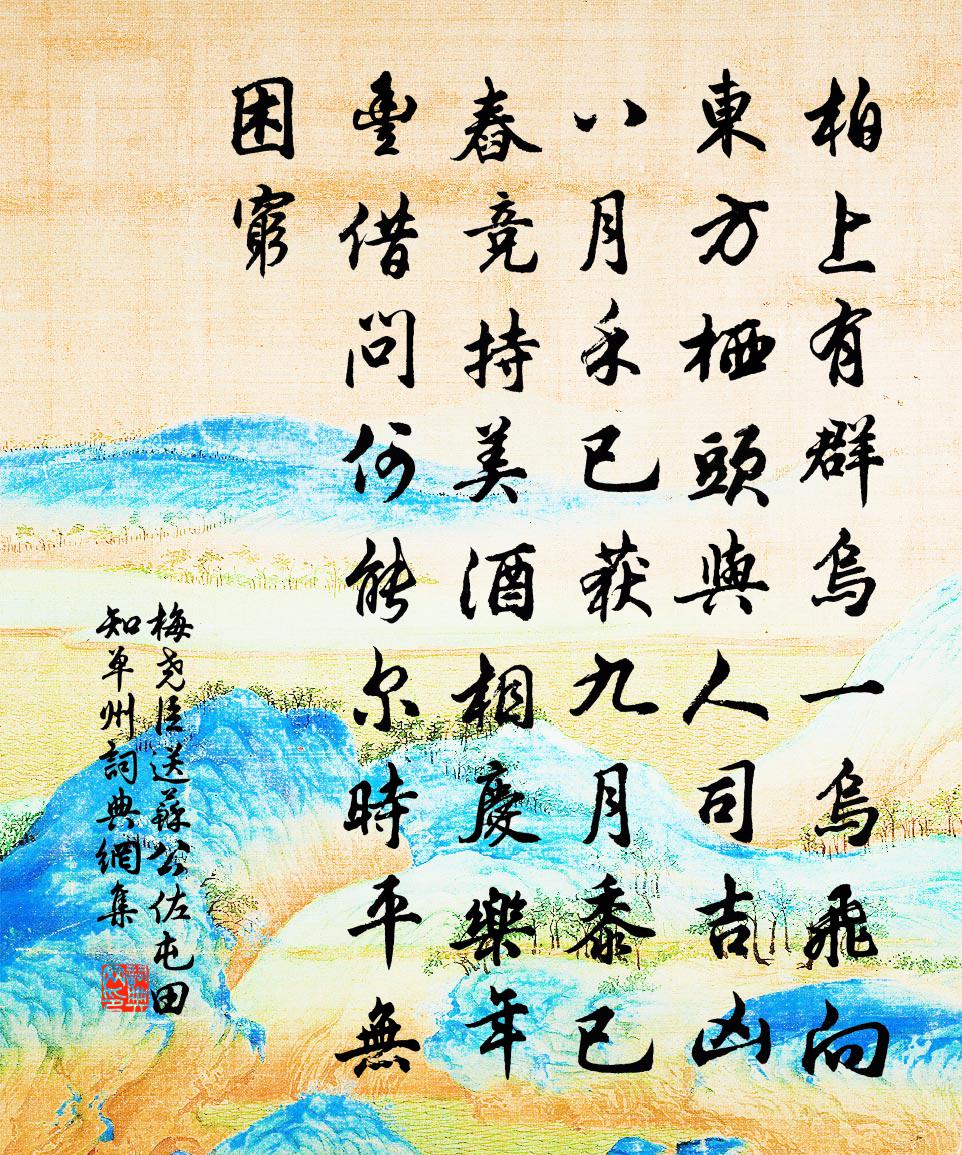 柏上有群烏一烏飛向
東方栖頭與人司吉凶
八月禾已获九月黍已
舂竞持美酒相慶樂年
豊借問何能尔時平無
困窮
梅尧臣送蘇公佐屯田
知单州詞典網集